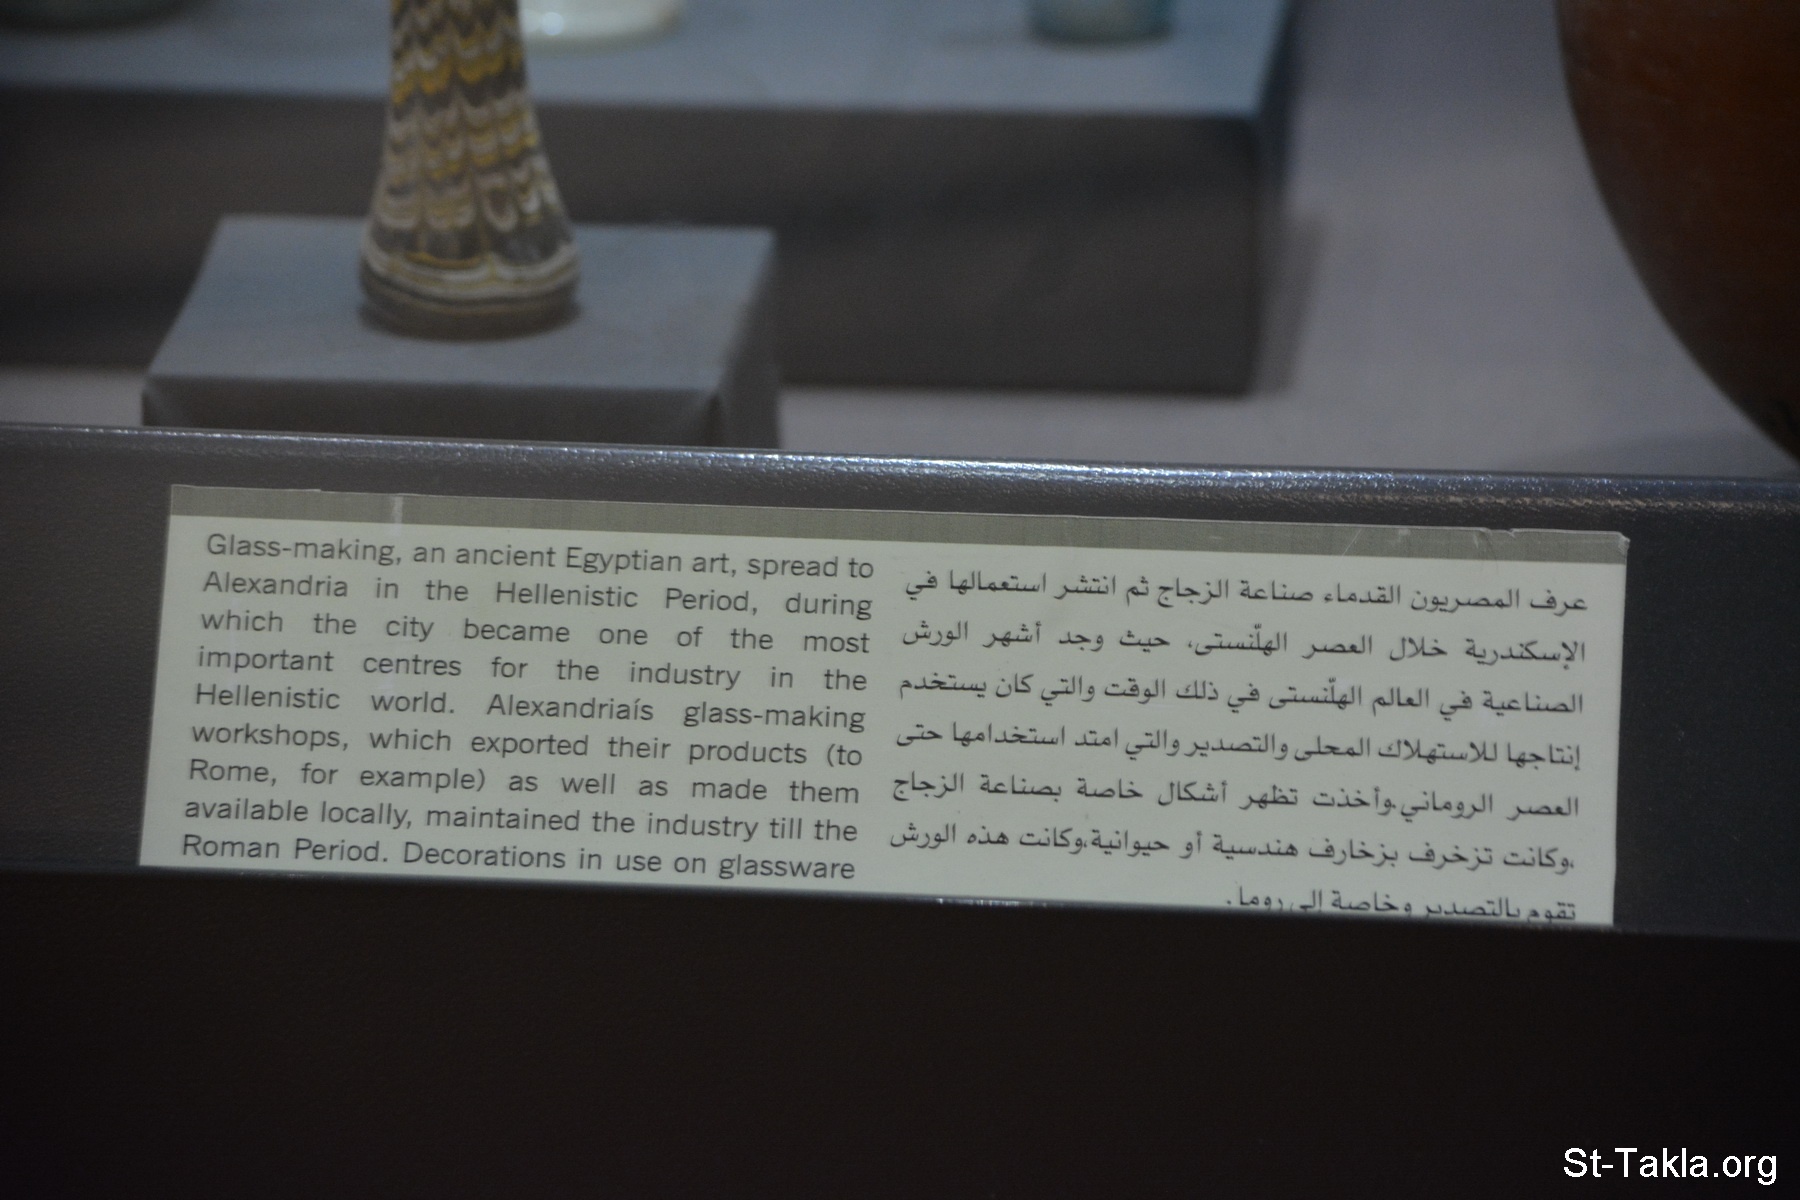 Glass-making, an ancient Egyptian art, spread to
Alexandria in the Hellenistic Period, during
which the city became one of the most
important centres for the industry in the
Hellenistic world. Alexandriaís glass-making
workshops, which exported their products (to
Rome, for example) as well as made them
available locally, maintained the industry till the
Roman Period. Decorations in use on glassware
عرف المصريون القدماء صناعة الزجاج ثم انتشر استعمالها في
الإسكندرية خلال العصر الهلّنستى، حيث وجد أشهر الورش
الصناعية في العالم الهلّنستى في ذلك الوقت والتي كان يستخدم
إنتاجها للاستهلاك المحلى والتصدير والتي امتد استخدامها حتى
العصر الروماني.وأخذت تظهر أشكال خاصة بصناعة الزجاج
،وكانت تزخرف بزخارف هندسية أو حيوانية،وكانت هذه الورش
تقوم بالتصدير وخاصة إلى روما.
St-Takla.org